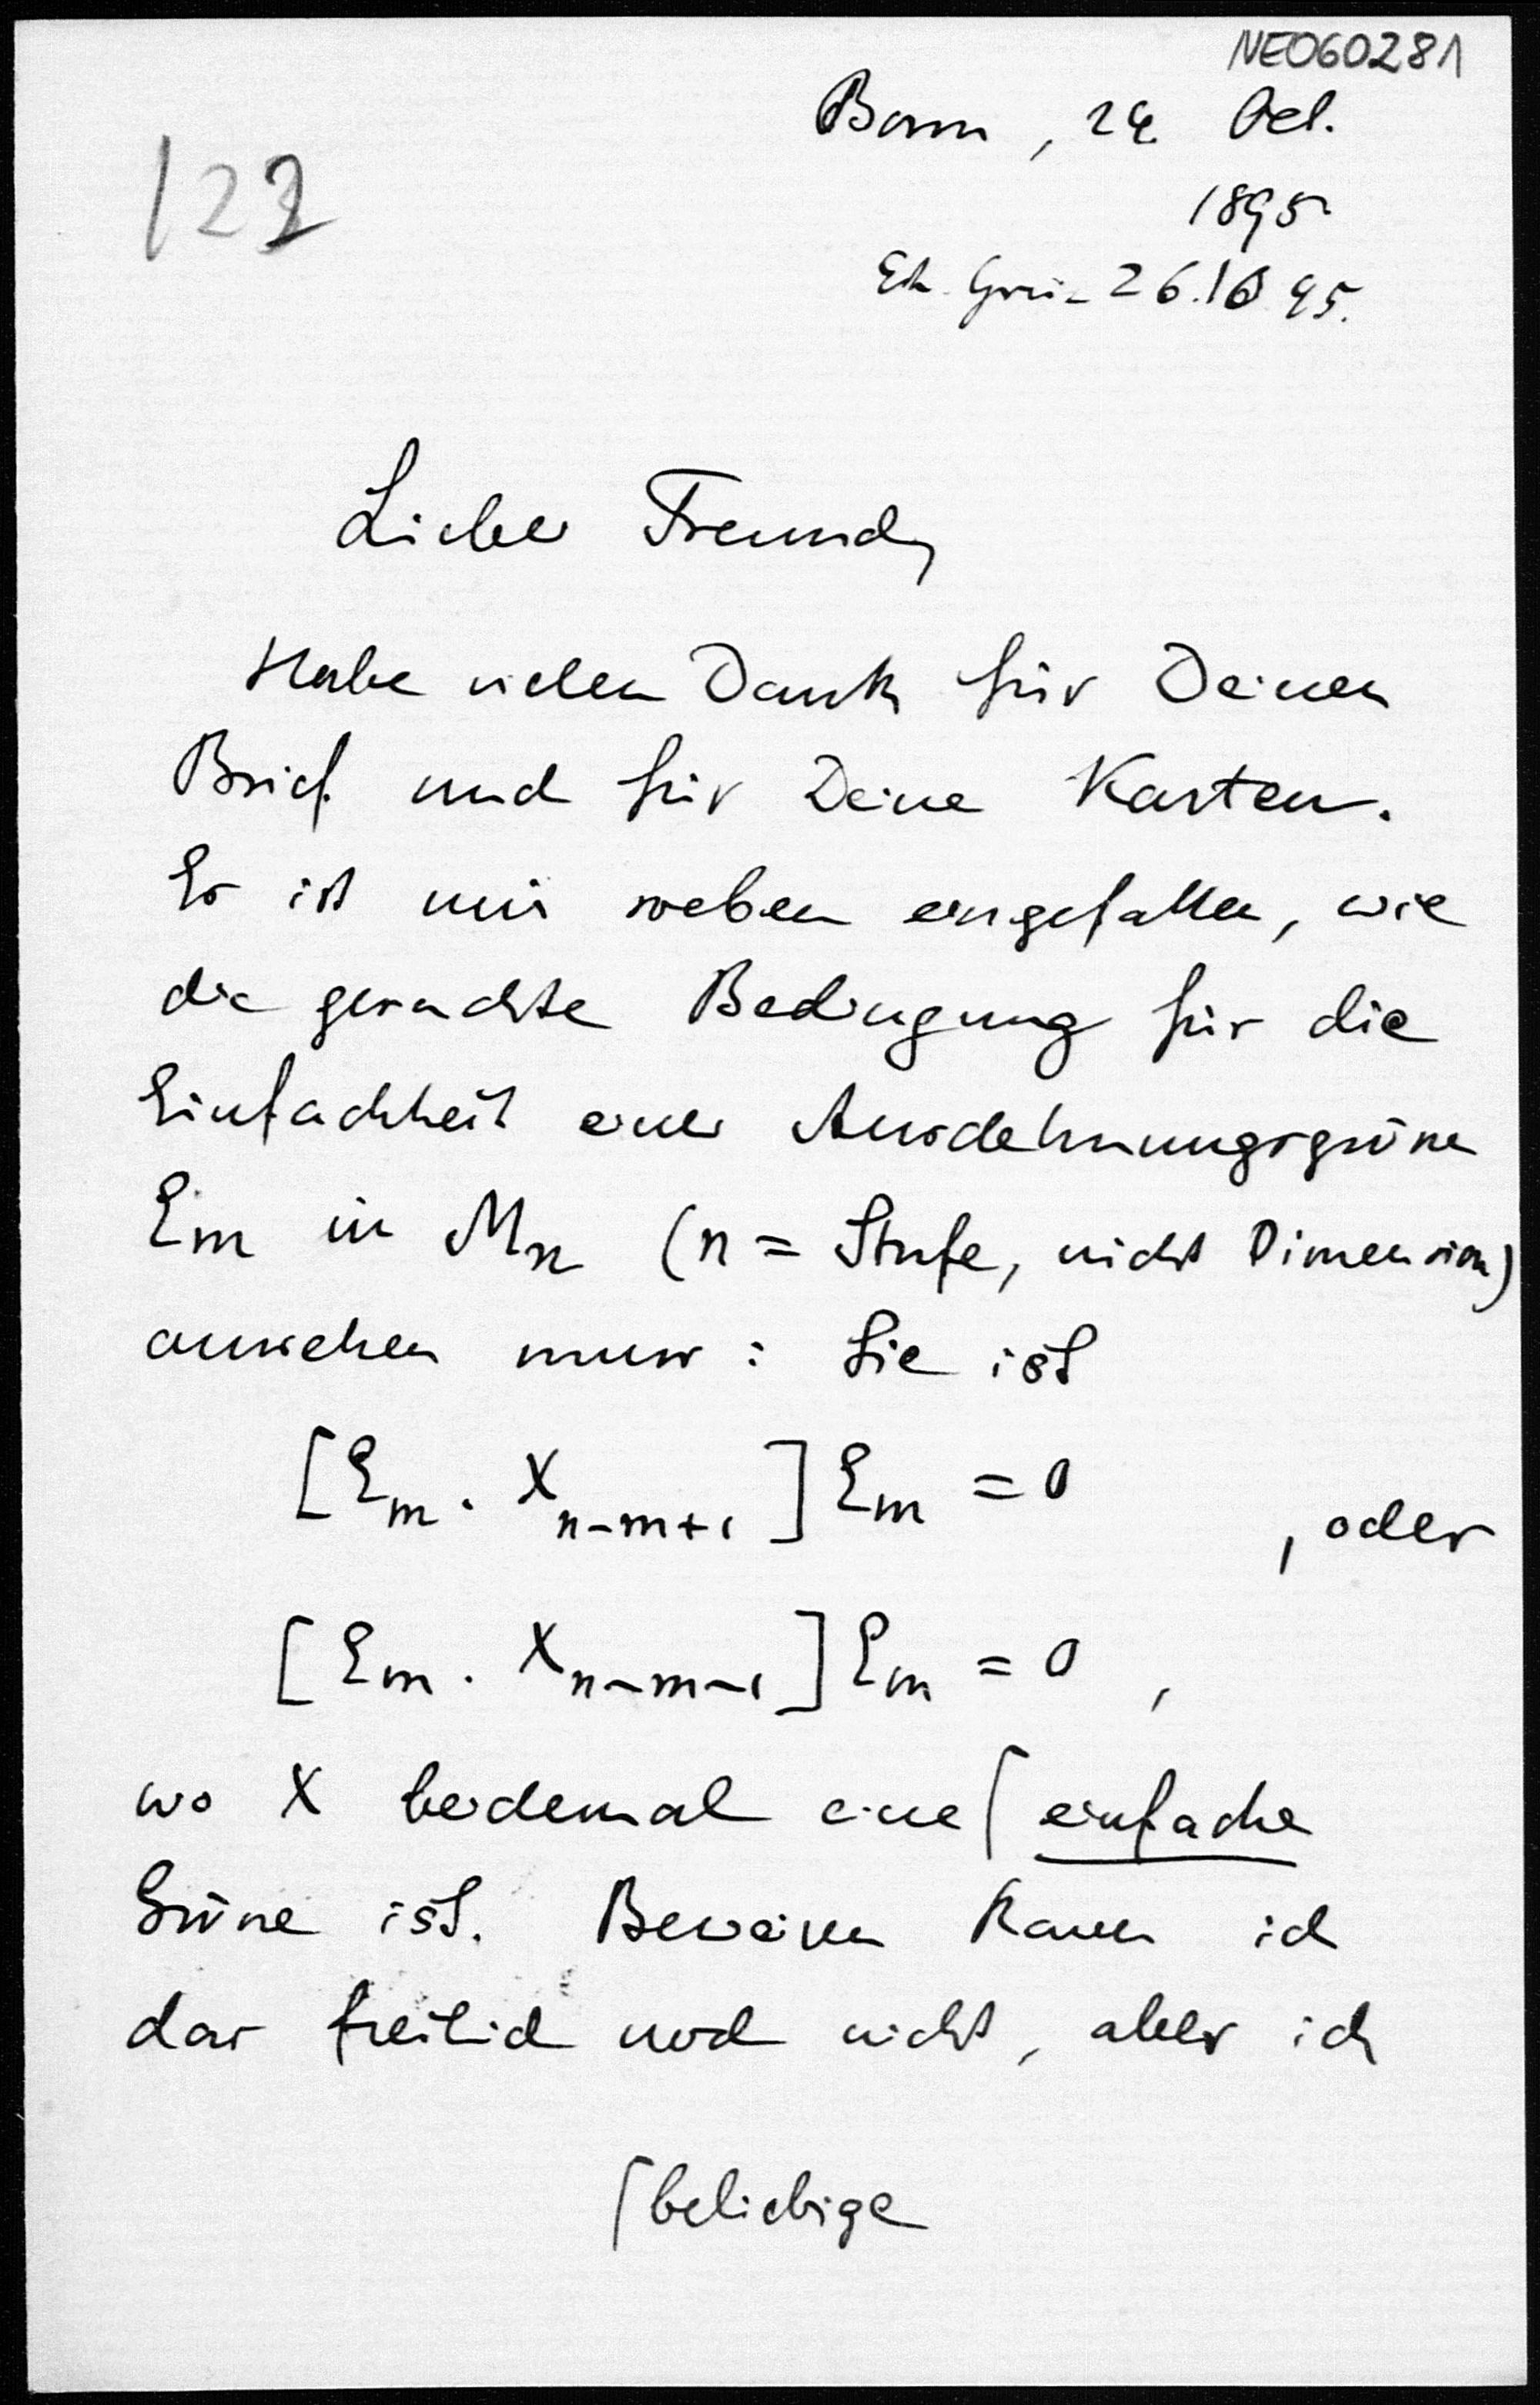 NE060281
Bonn, 24 Oct.
1895
122
Eh. 26.10 95.
Lieber Freund,
Habe vielen Dank für Deinen
Brief und für Deine Karten.
Es ist mir soeben eingefallen, wie
die gesuchte Bedingung für die
Einfachheit einer Ausdehnungsgröße
Em in Mn (n = Stufe, nicht Dimension)
aussehen muss: Sie ist
[Em . Xn-m+1] Em = 0 , oder
[Em . Xn-m-1] Em = 0 ,
wo X beidemal eine ⌈ einfache
Größe ist. Beweisen kann ich
das freilich noch nicht, aber ich
⌈ beliebige